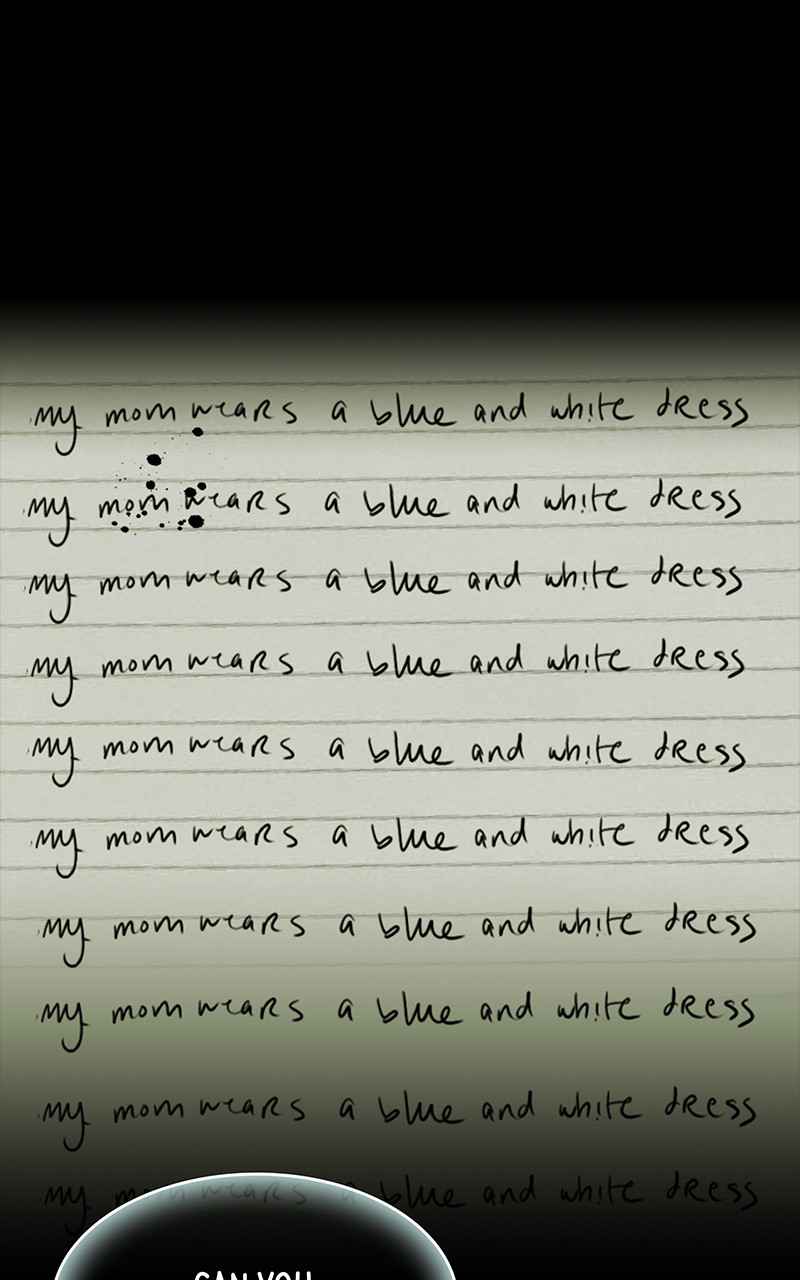 my mom wears a blue and white dress
my mom wears a blue and white dress
my mom wears a blue and white dress
my mom wears a blue and white dress
my mom wears a blue and white dress
my mom wears a blue and white dress
my mom wears a blue and white dress
my mom wears a blue and white dress
my mom wears a blue and white dress
my mom wears a blue and white dress
CAN YOU